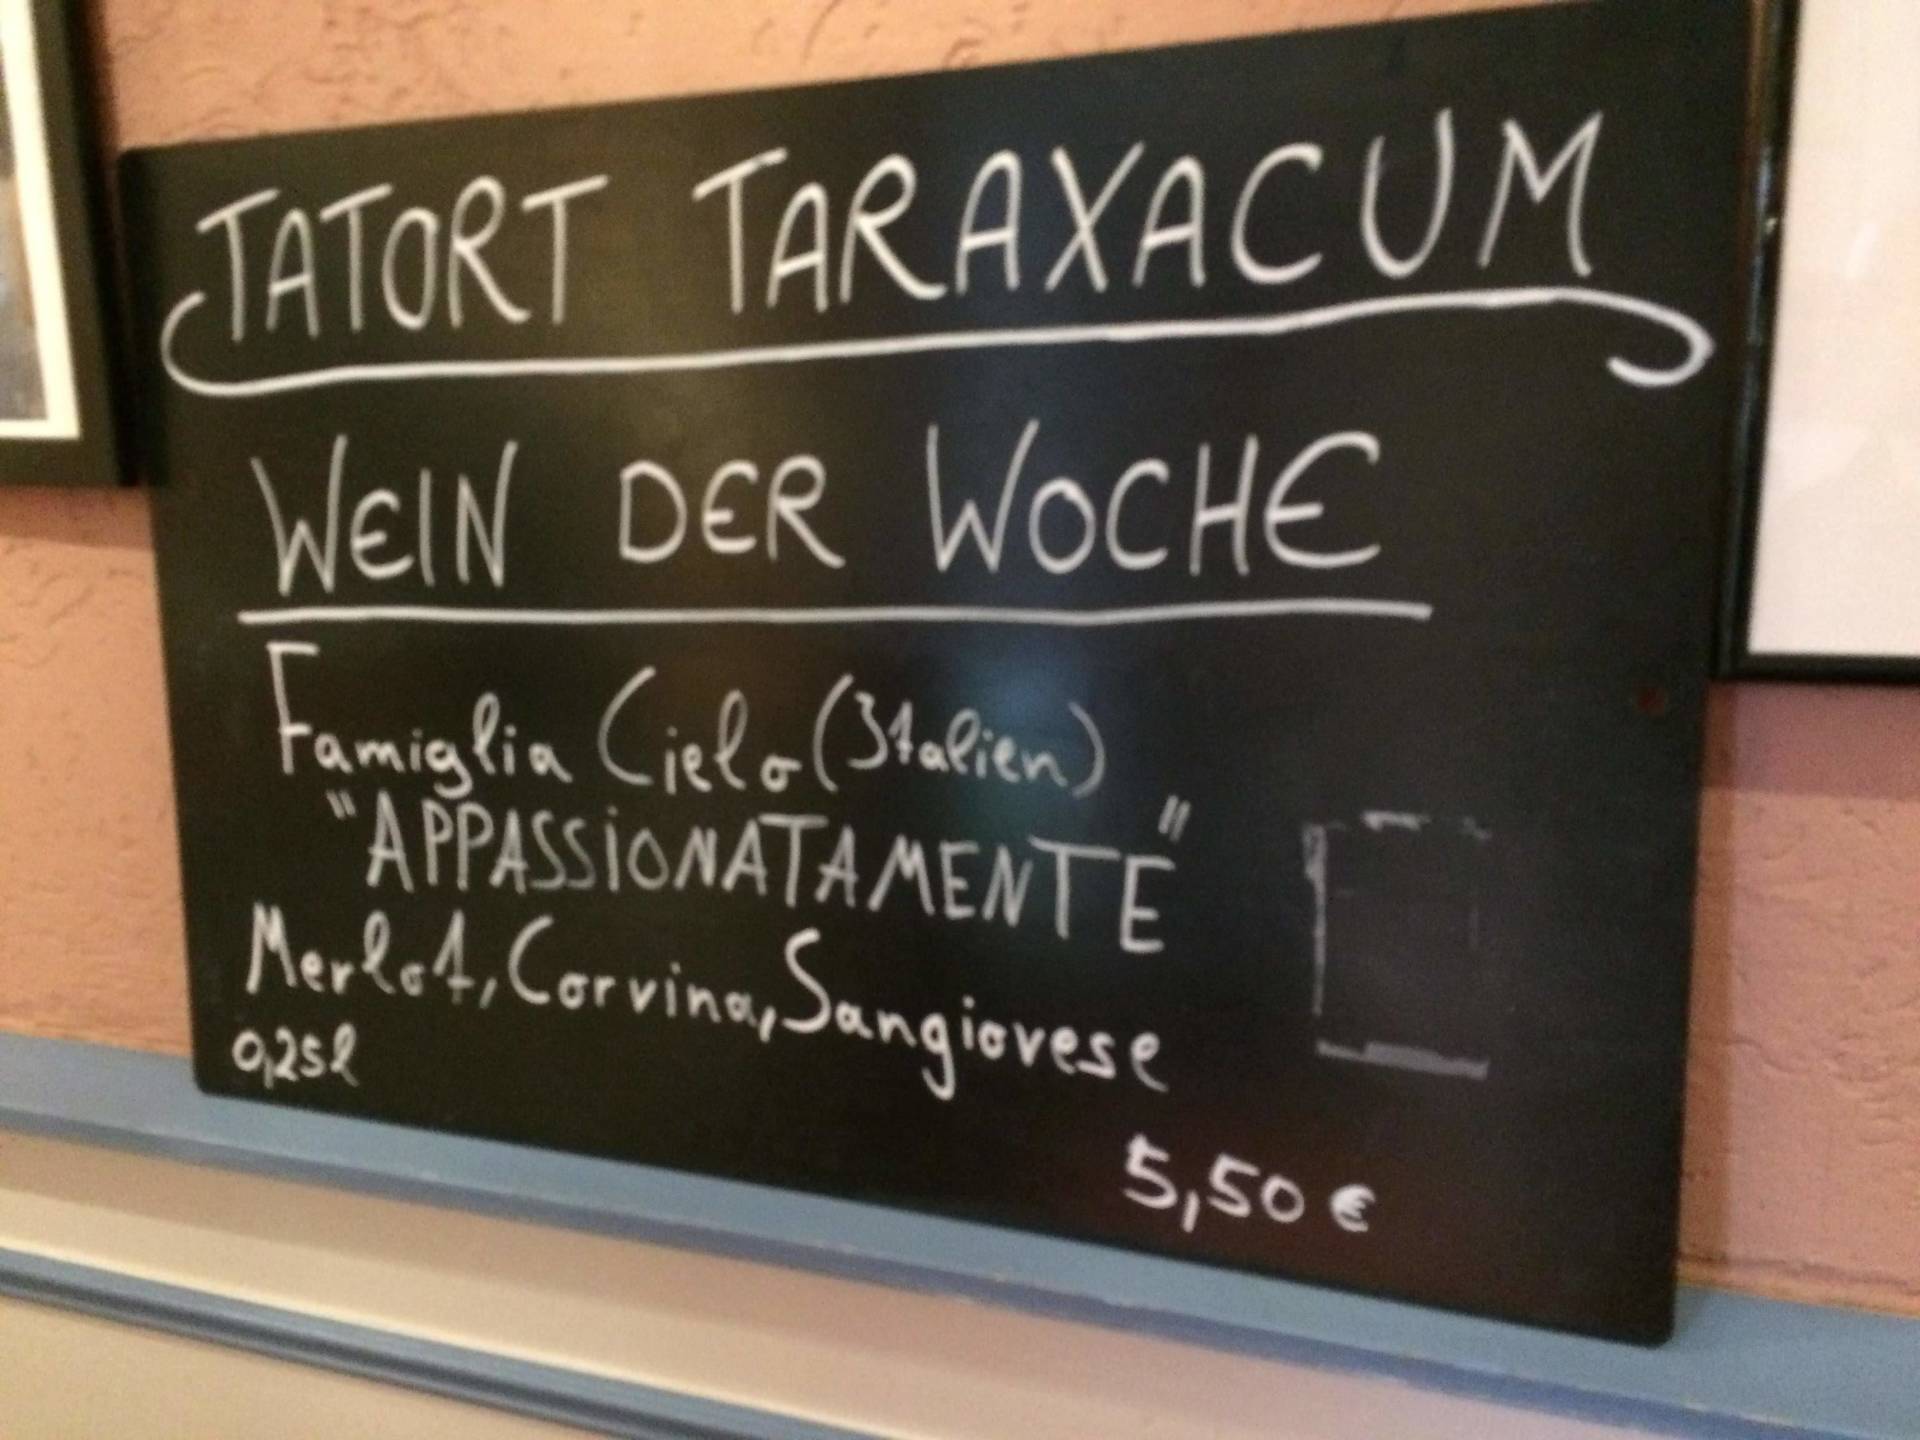 TATORT TARAXACUM
WEIN DER WOCHE
Famiglia Cielo (Italien)
"APPASSiONATAMENTE"
Merlot, Corvina, Sangiovese
0,25l
5,50 €